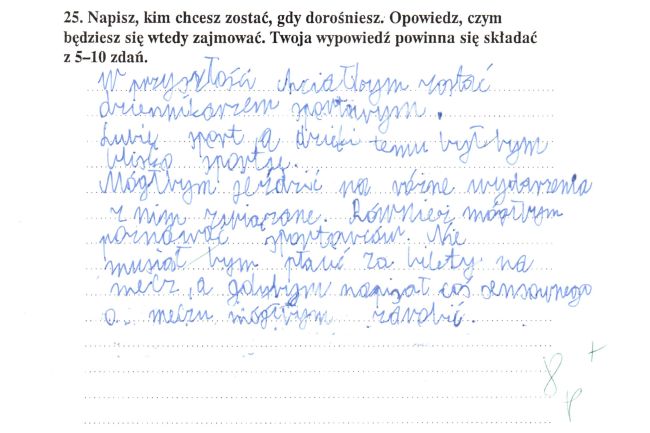 25. Napisz, kim chcesz zostać, gdy dorośniesz. Opowiedz, czym
będziesz się wtedy zajmować. Twoja wypowiedź powinna się składać
z 5–10 zdań.
W przyszłości chciałbym zostać
dziennikarzem sportowym.
Lubię sport, a dzięki temu był bym
blisko sportu.
Mógłbym jeździć na różne wydarzenia
z nim związane. Również mógłbym
poznawać sportowców. Nie
musiał bym płacić za bilety na
mecz, a gdybym napisał coś sensownego
o meczu mógłbym zarobić.
8 +